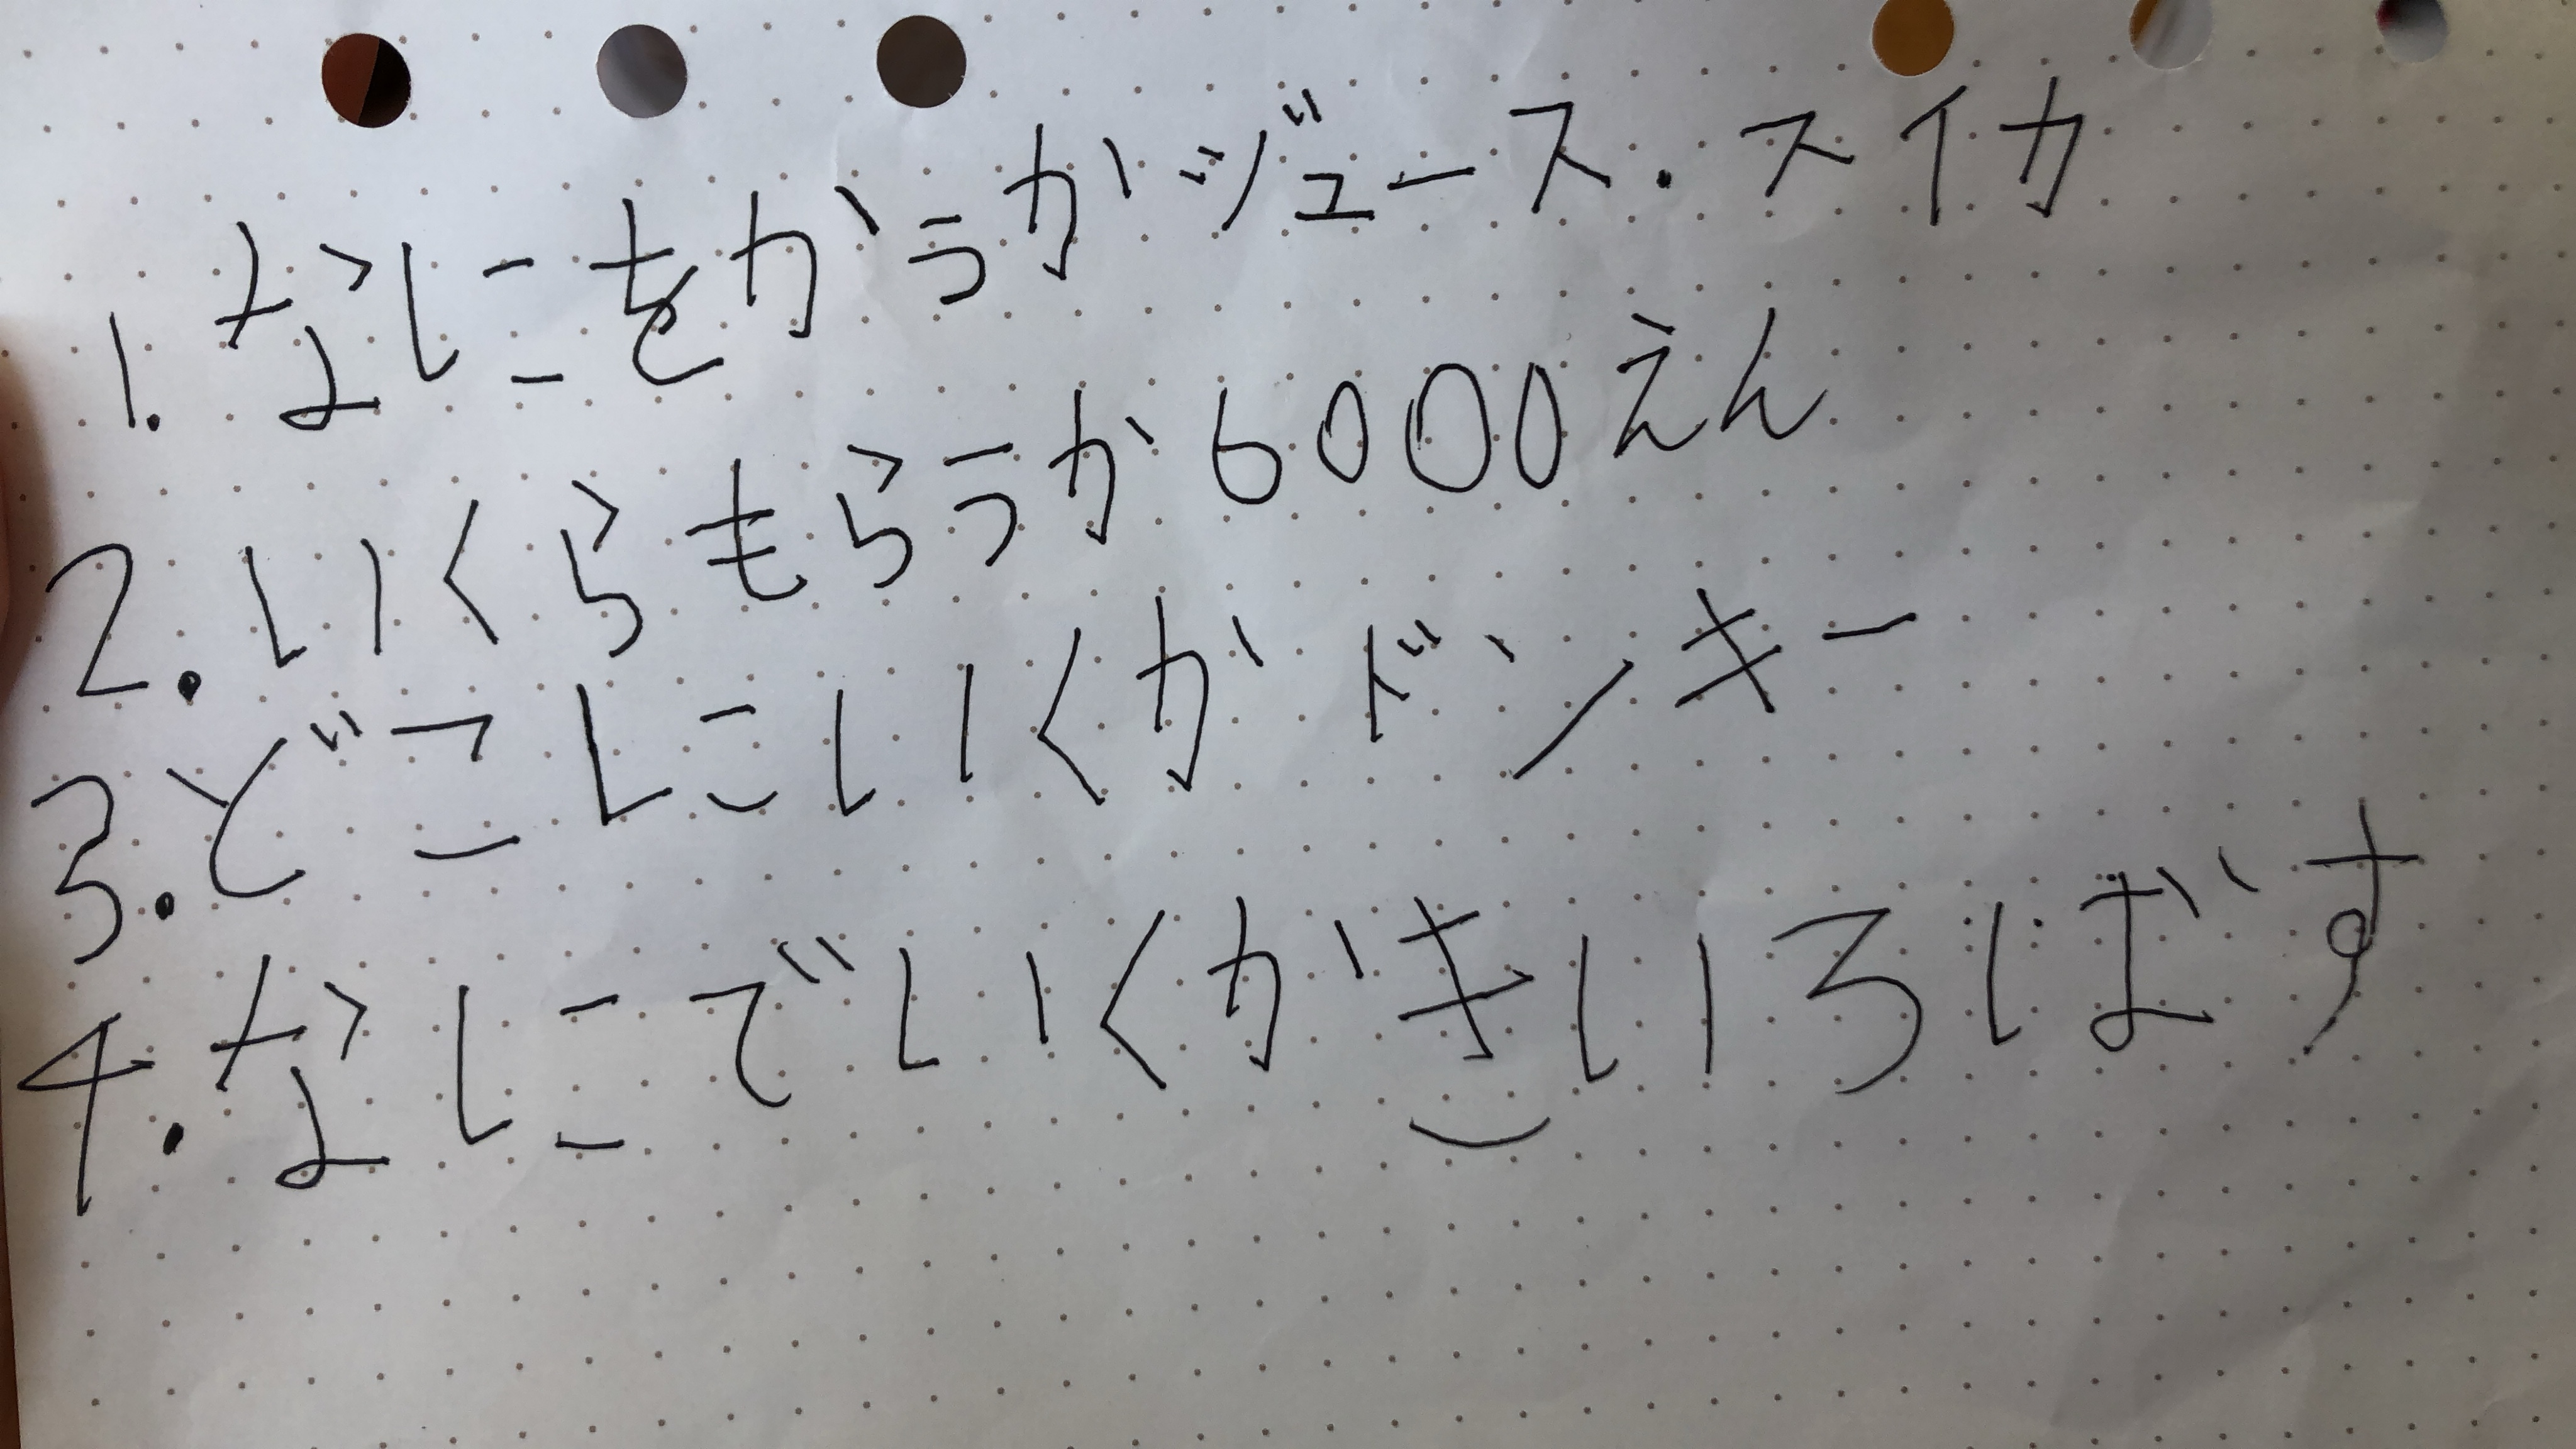 1. なにをかうかジュース.スイカ
2. いくらもらうか6000えん
3. どこにいくかドンキー
4. なにでいくかきいろばす